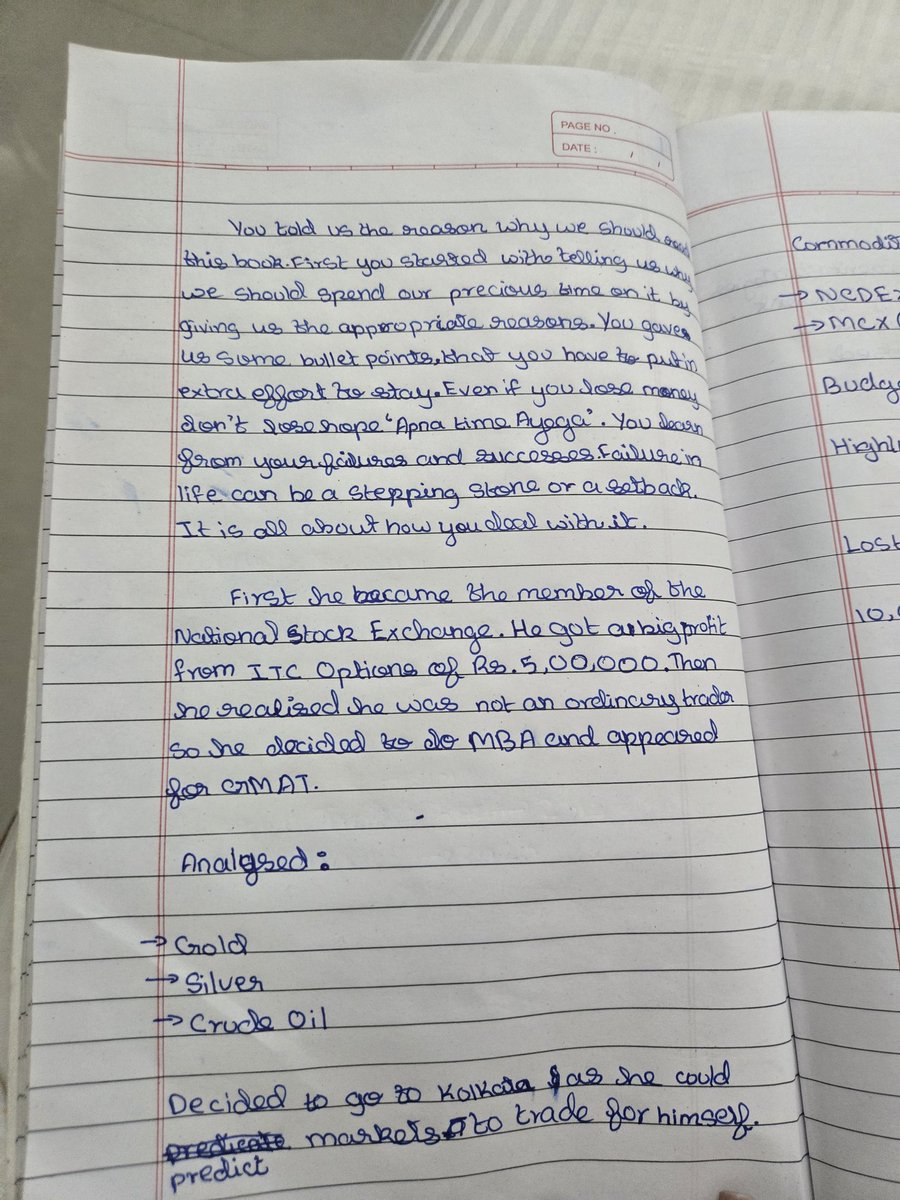 PAGE NO.
DATE : / /
You told us the reason why we should read
this book. First you starred withe telling us why
we should spend our precious time on it by
giving us the appropriate reasons. You gave
us some bullet points, that you have to put in
extra effort to stay. Even if you lose money
don't lose hope "Apna time Ayega". You learn
from your failures and successes. Failure in
life can be a stepping stone or a setback.
It is all about how you deal with it.
First he became the member of the
National Stock Exchange. He got a big profit
from ITC Options of Rs. 5,00,000. Then
he realised he was not an ordinary trader
so he decided to do MBA and appeared
for GMAT.
Analysed :
→ Gold
→ Silver
→ Crude Oil
Decided to go to Kolkata as he could
predict markets to trade for himself.
Commodi
→ NCDE
→ MCX (
Budg
Highl
Lost
10,